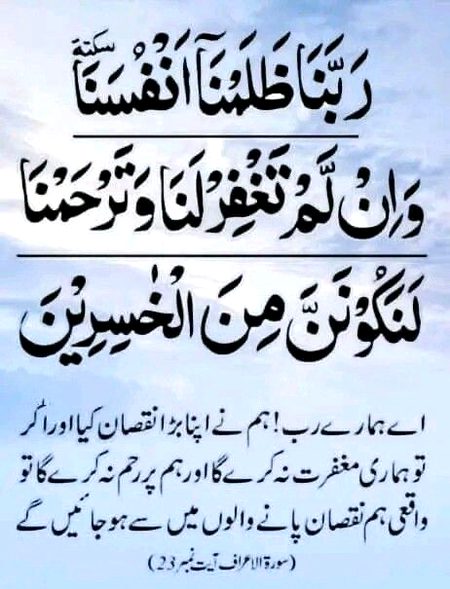 رَبَّنَا ظَلَمْنَآ اَنْفُسَنَا سكتة
وَاِنْ لَّمْ تَغْفِرْ لَنَا وَتَرْحَمْنَا
لَنَكُوْنَنَّ مِنَ الْخٰسِرِيْنَ
اے ہمارے رب! ہم نے اپنا بڑا نقصان کیا اور اگر
تو ہماری مغفرت نہ کرے گا اور ہم پر رحم نہ کرے گا تو
واقعی ہم نقصان پانے والوں میں سے ہو جائیں گے
(سورۃ الاعراف آیت نمبر 23)